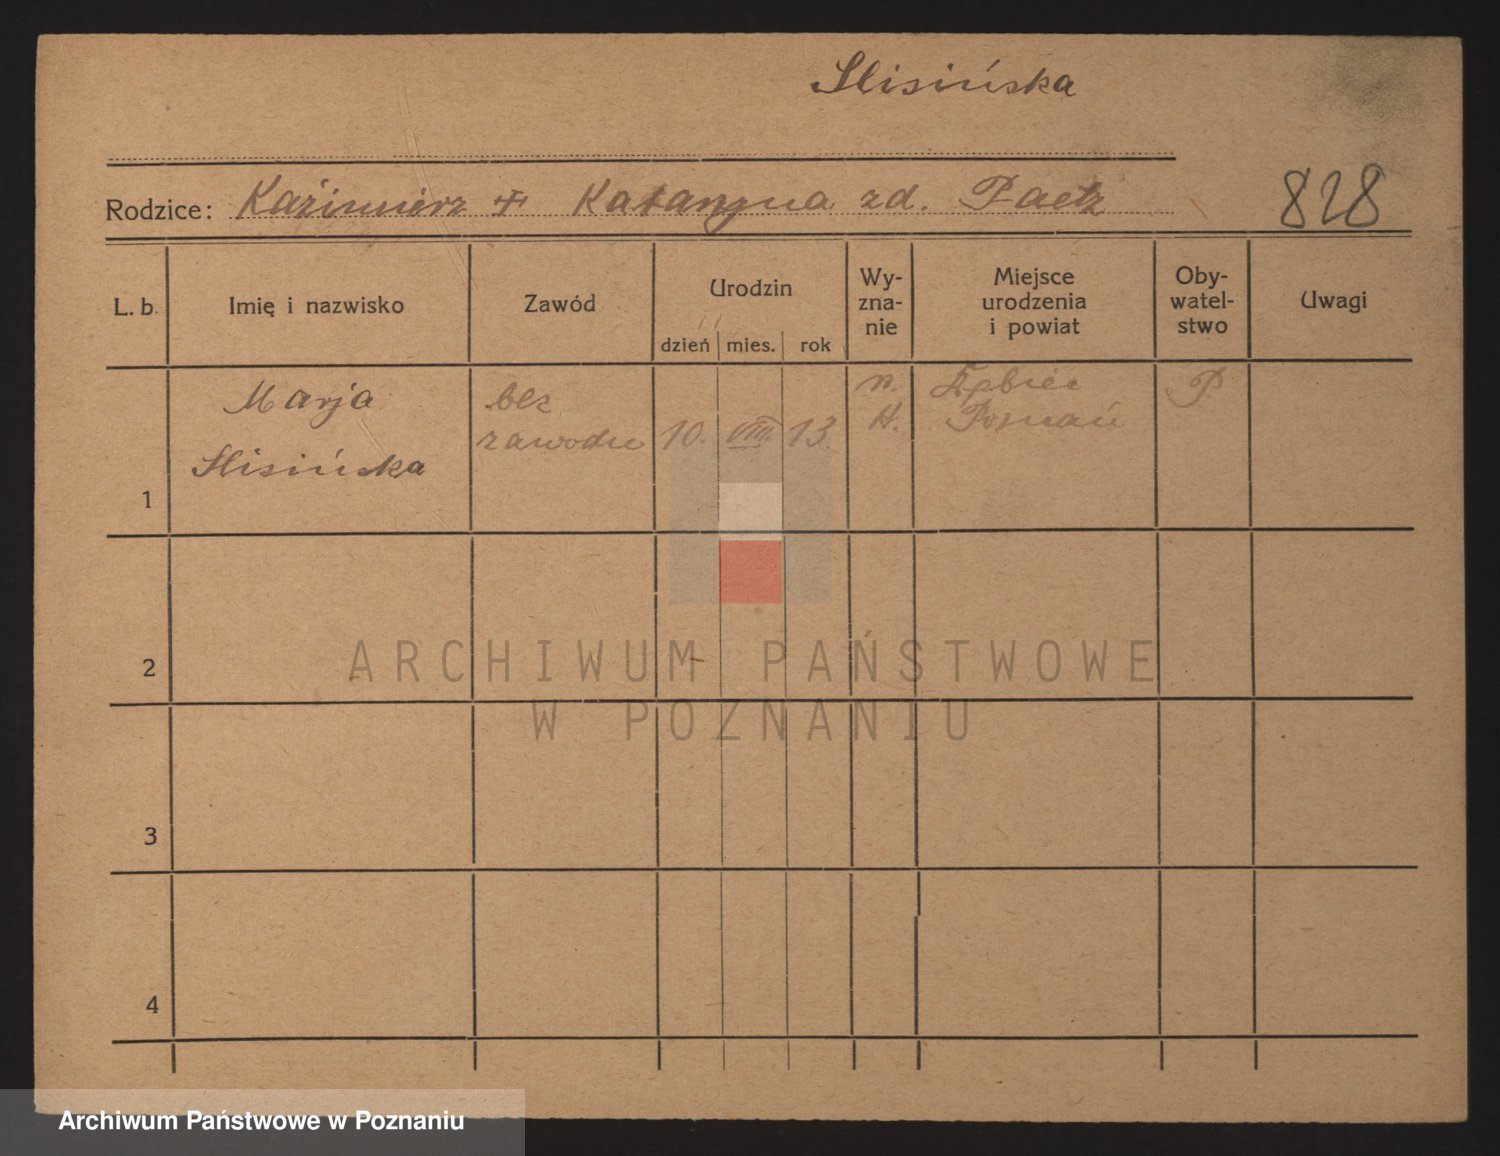 Slisińska
Rodzice: Kazimierz + Katarzyna zd. Paetz
828
L. b. Imię i nazwisko Zawód Urodzin Wy-zna-nie Miejsce urodzenia i powiat Oby-watel-stwo Uwagi
dzień mies. rok
Marja bez r. P.
Slisińska zawodu 10. VIII. 13. K. Poznań
1
2
3
4
ARCHIWUM PAŃSTWOWE
W POZNANIU
Archiwum Państwowe w Poznaniu